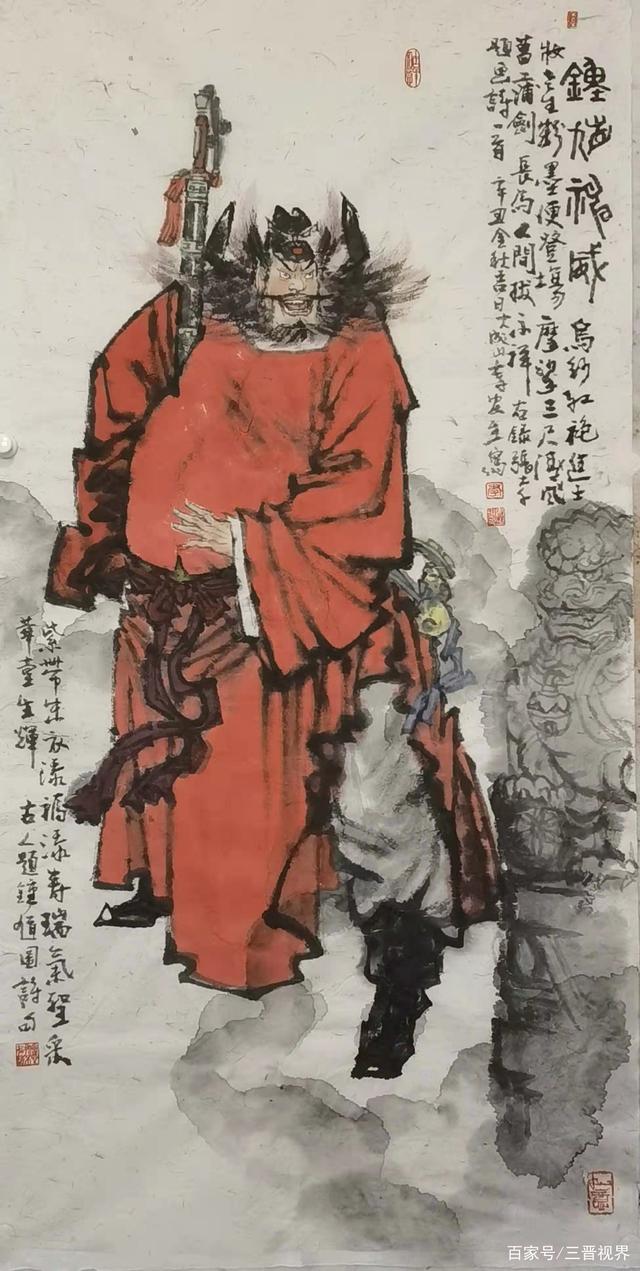 鍾馗神威 烏紗紅袍進士
妝 生粉墨便登場 摩挲三尺
菖蒲劍 長為人間拔不祥 右錄張大千
題画詩一首 辛丑金秋吉日大成山李安生寫
紫帶朱衣添福添壽瑞氣 采
華堂生輝 古人題鍾馗圖詩句
百家号/三晋视界